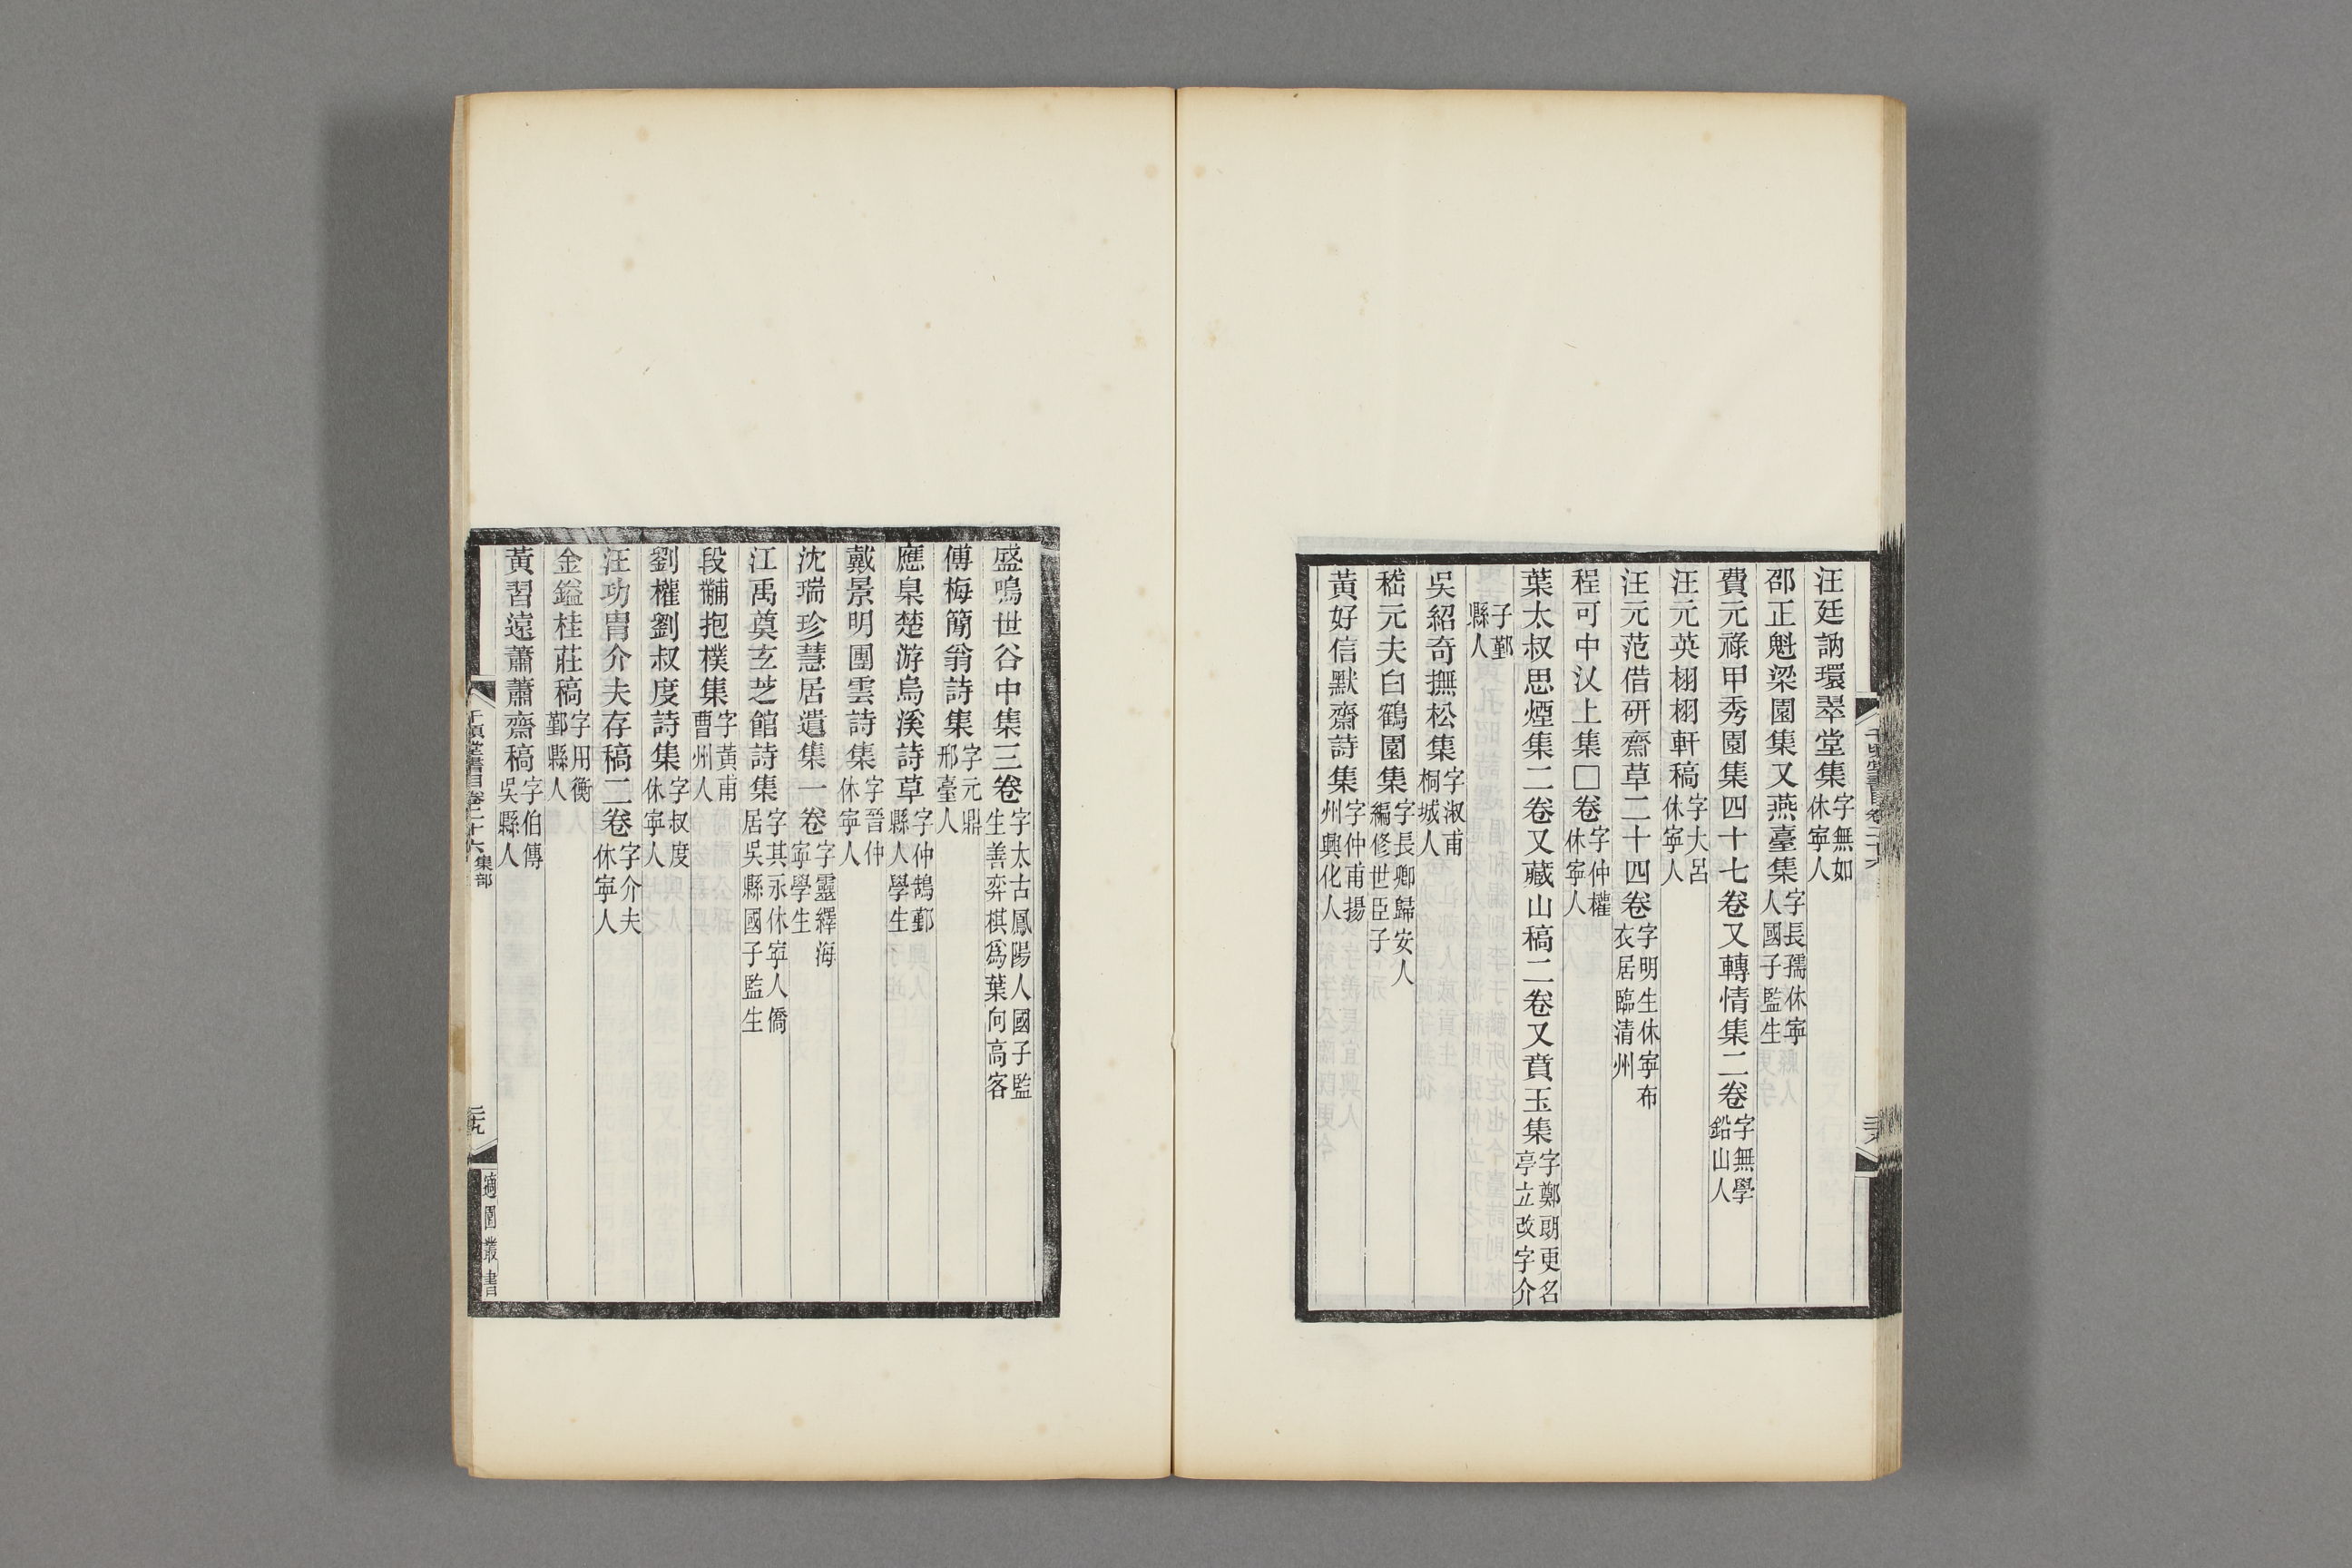 汪廷訥環翠堂集字無如休寧人
邵正魁梁園集又燕臺集字長孺休寧人國子監生
費元祿甲秀園集四十七卷又轉情集二卷字無學鉛山人
汪元英栩栩軒稿字大呂休寧人
汪元范借研齋草二十四卷字明生休寧布衣居臨清州
程可中汊上集□卷字仲權休寧人
葉太叔思煙集二卷又藏山稿二卷又賁玉集字鄭朗更名亭立改字介
子鄞縣人
吳紹奇撫松集字淑甫桐城人
嵇元夫白鶴園集字長卿歸安人編修世臣子
黃好信默齋詩集字仲甫揚州興化人
盛鳴世谷中集三卷字太古鳳陽人國子監生善弈棋爲葉向高客
傅梅簡翁詩集字元鼎邢臺人
應臬楚游烏溪詩草字仲鵠鄞縣人學生
戴景明團雲詩集字晉仲休寧人
沈瑞珍慧居遺集一卷字靈繹海寧學生
江禹奠玄芝館詩集字其永休寧人僑居吳縣國子監生
段黼抱樸集字黃甫曹州人
劉權劉叔度詩集字叔度休寧人
汪功冑介夫存稿二卷字介夫休寧人
金鎰桂莊稿字用衡鄞縣人
黃習遠蕭蕭齋稿字伯傳吳縣人
千頃堂書目卷二十六 集部
適園叢書